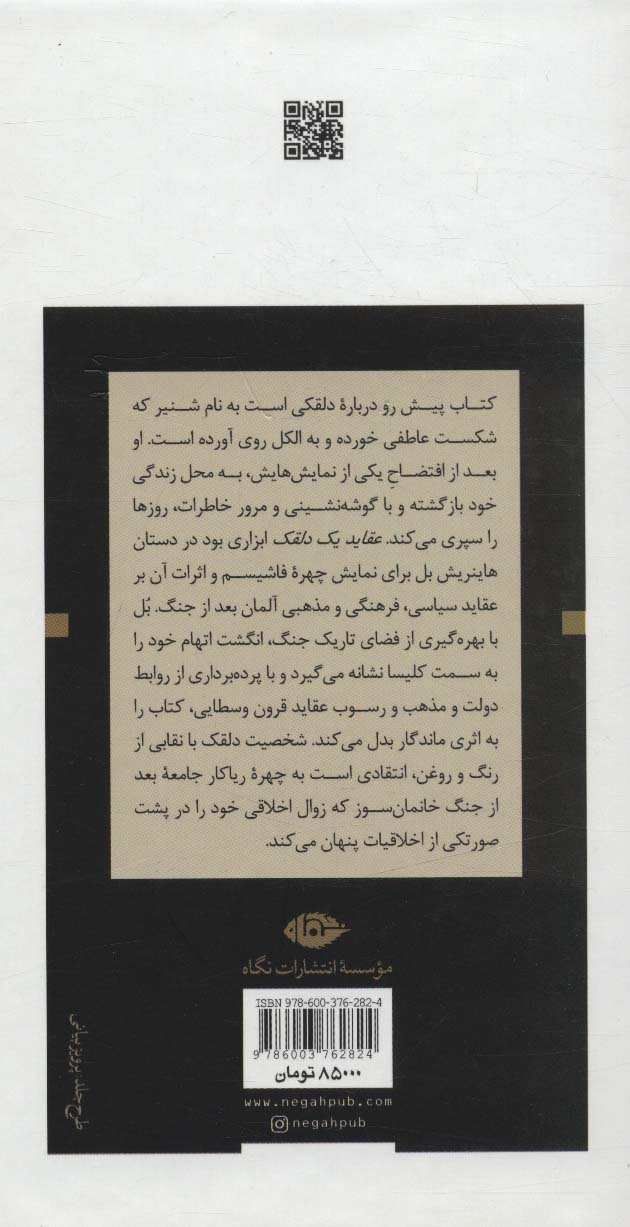 کتاب پیش رو دربارهٔ دلقکی است به نام شنیر که
شکست عاطفی خورده و به الکل روی آورده است. او
بعد از افتضاحِ یکی از نمایش‌هایش، به محل زندگی
خود بازگشته و با گوشه‌نشینی و مرور خاطرات، روزها
را سپری می‌کند. عقاید یک دلقک ابزاری بود در دستان
هاینریش بل برای نمایش چهرهٔ فاشیسم و اثرات آن بر
عقاید سیاسی، فرهنگی و مذهبی آلمان بعد از جنگ. بُل
با بهره‌گیری از فضای تاریک جنگ، انگشت اتهام خود را
به سمت کلیسا نشانه می‌گیرد و با پرده‌برداری از روابط
دولت و مذهب و رسوب عقاید قرون وسطایی، کتاب را
به اثری ماندگار بدل می‌کند. شخصیت دلقک با نقابی از
رنگ و روغن، انتقادی است به چهرهٔ ریاکار جامعهٔ بعد
از جنگ خانمان‌سوز که زوال اخلاقی خود را در پشت
صورتکی از اخلاقیات پنهان می‌کند.
مؤسسهٔ انتشارات نگاه
ISBN 978-600-376-282-4
9 786003 762824
۸۵۰۰۰ تومان
www.negahpub.com
negahpub
طرح جلد: پرویز بیانی